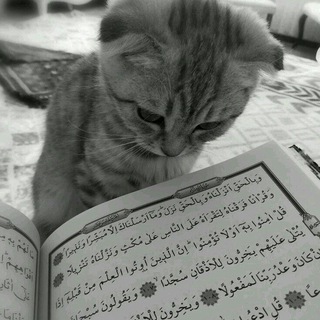 وَبِالْحَقِّ أَنزَلْنَاهُ وَبِالْحَقِّ نَزَلَ وَمَا أَرْسَلْنَاكَ إِلَّا مُبَشِّرًا وَنَذِيرًا
وَقُرْآنًا فَرَقْنَاهُ لِتَقْرَأَهُ عَلَى النَّاسِ عَلَىٰ مُكْثٍ وَنَزَّلْنَاهُ تَنزِيلًا
قُلْ آمِنُوا بِهِ أَوْ لَا تُؤْمِنُوا إِنَّ الَّذِينَ أُوتُوا الْعِلْمَ مِن قَبْلِهِ إِذَا
يُتْلَىٰ عَلَيْهِمْ يَخِرُّونَ لِلْأَذْقَانِ سُجَّدًا وَيَقُولُونَ سُبْحَانَ
كَانَ وَعْدُ رَبِّنَا لَمَفْعُولًا وَيَخِرُّونَ لِلْأَذْقَانِ
قُلِ ادْعُوا